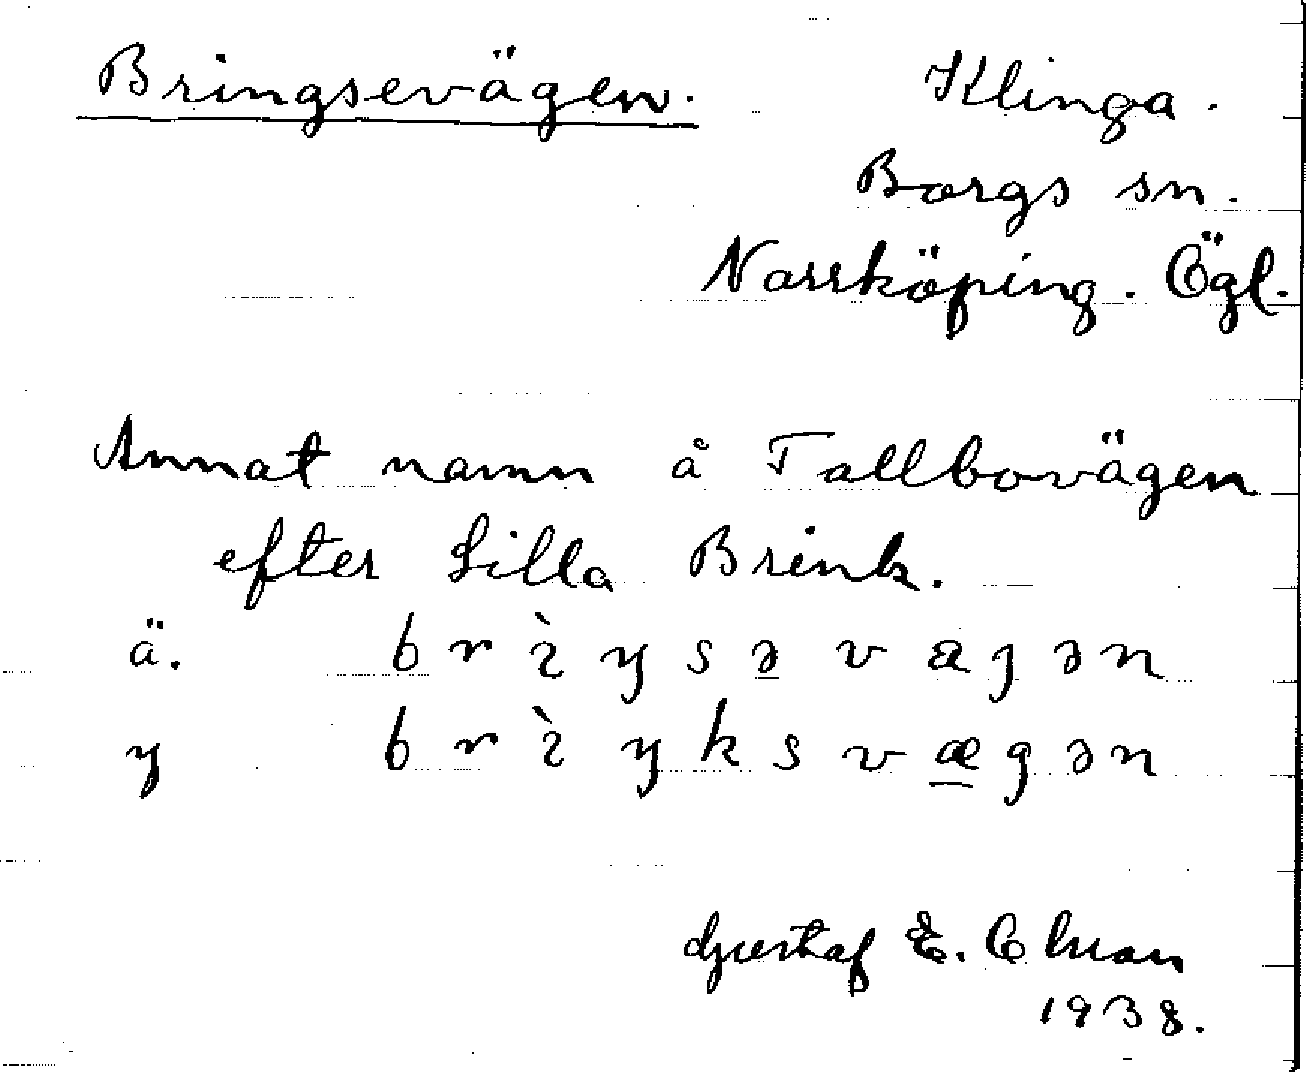 Bringsevägen. Klinga.
Borgs sn.
Norrköping. Ögl.
Annat namn å Tallbovägen
efter Lilla Brink.
ä. brìŋsəvægən
y brìŋksvægən
Gustaf E.
1938.